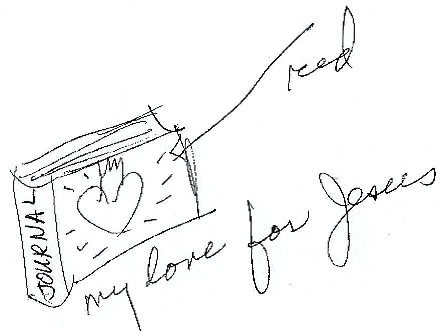 red
JOURNAL
my love for Jesus